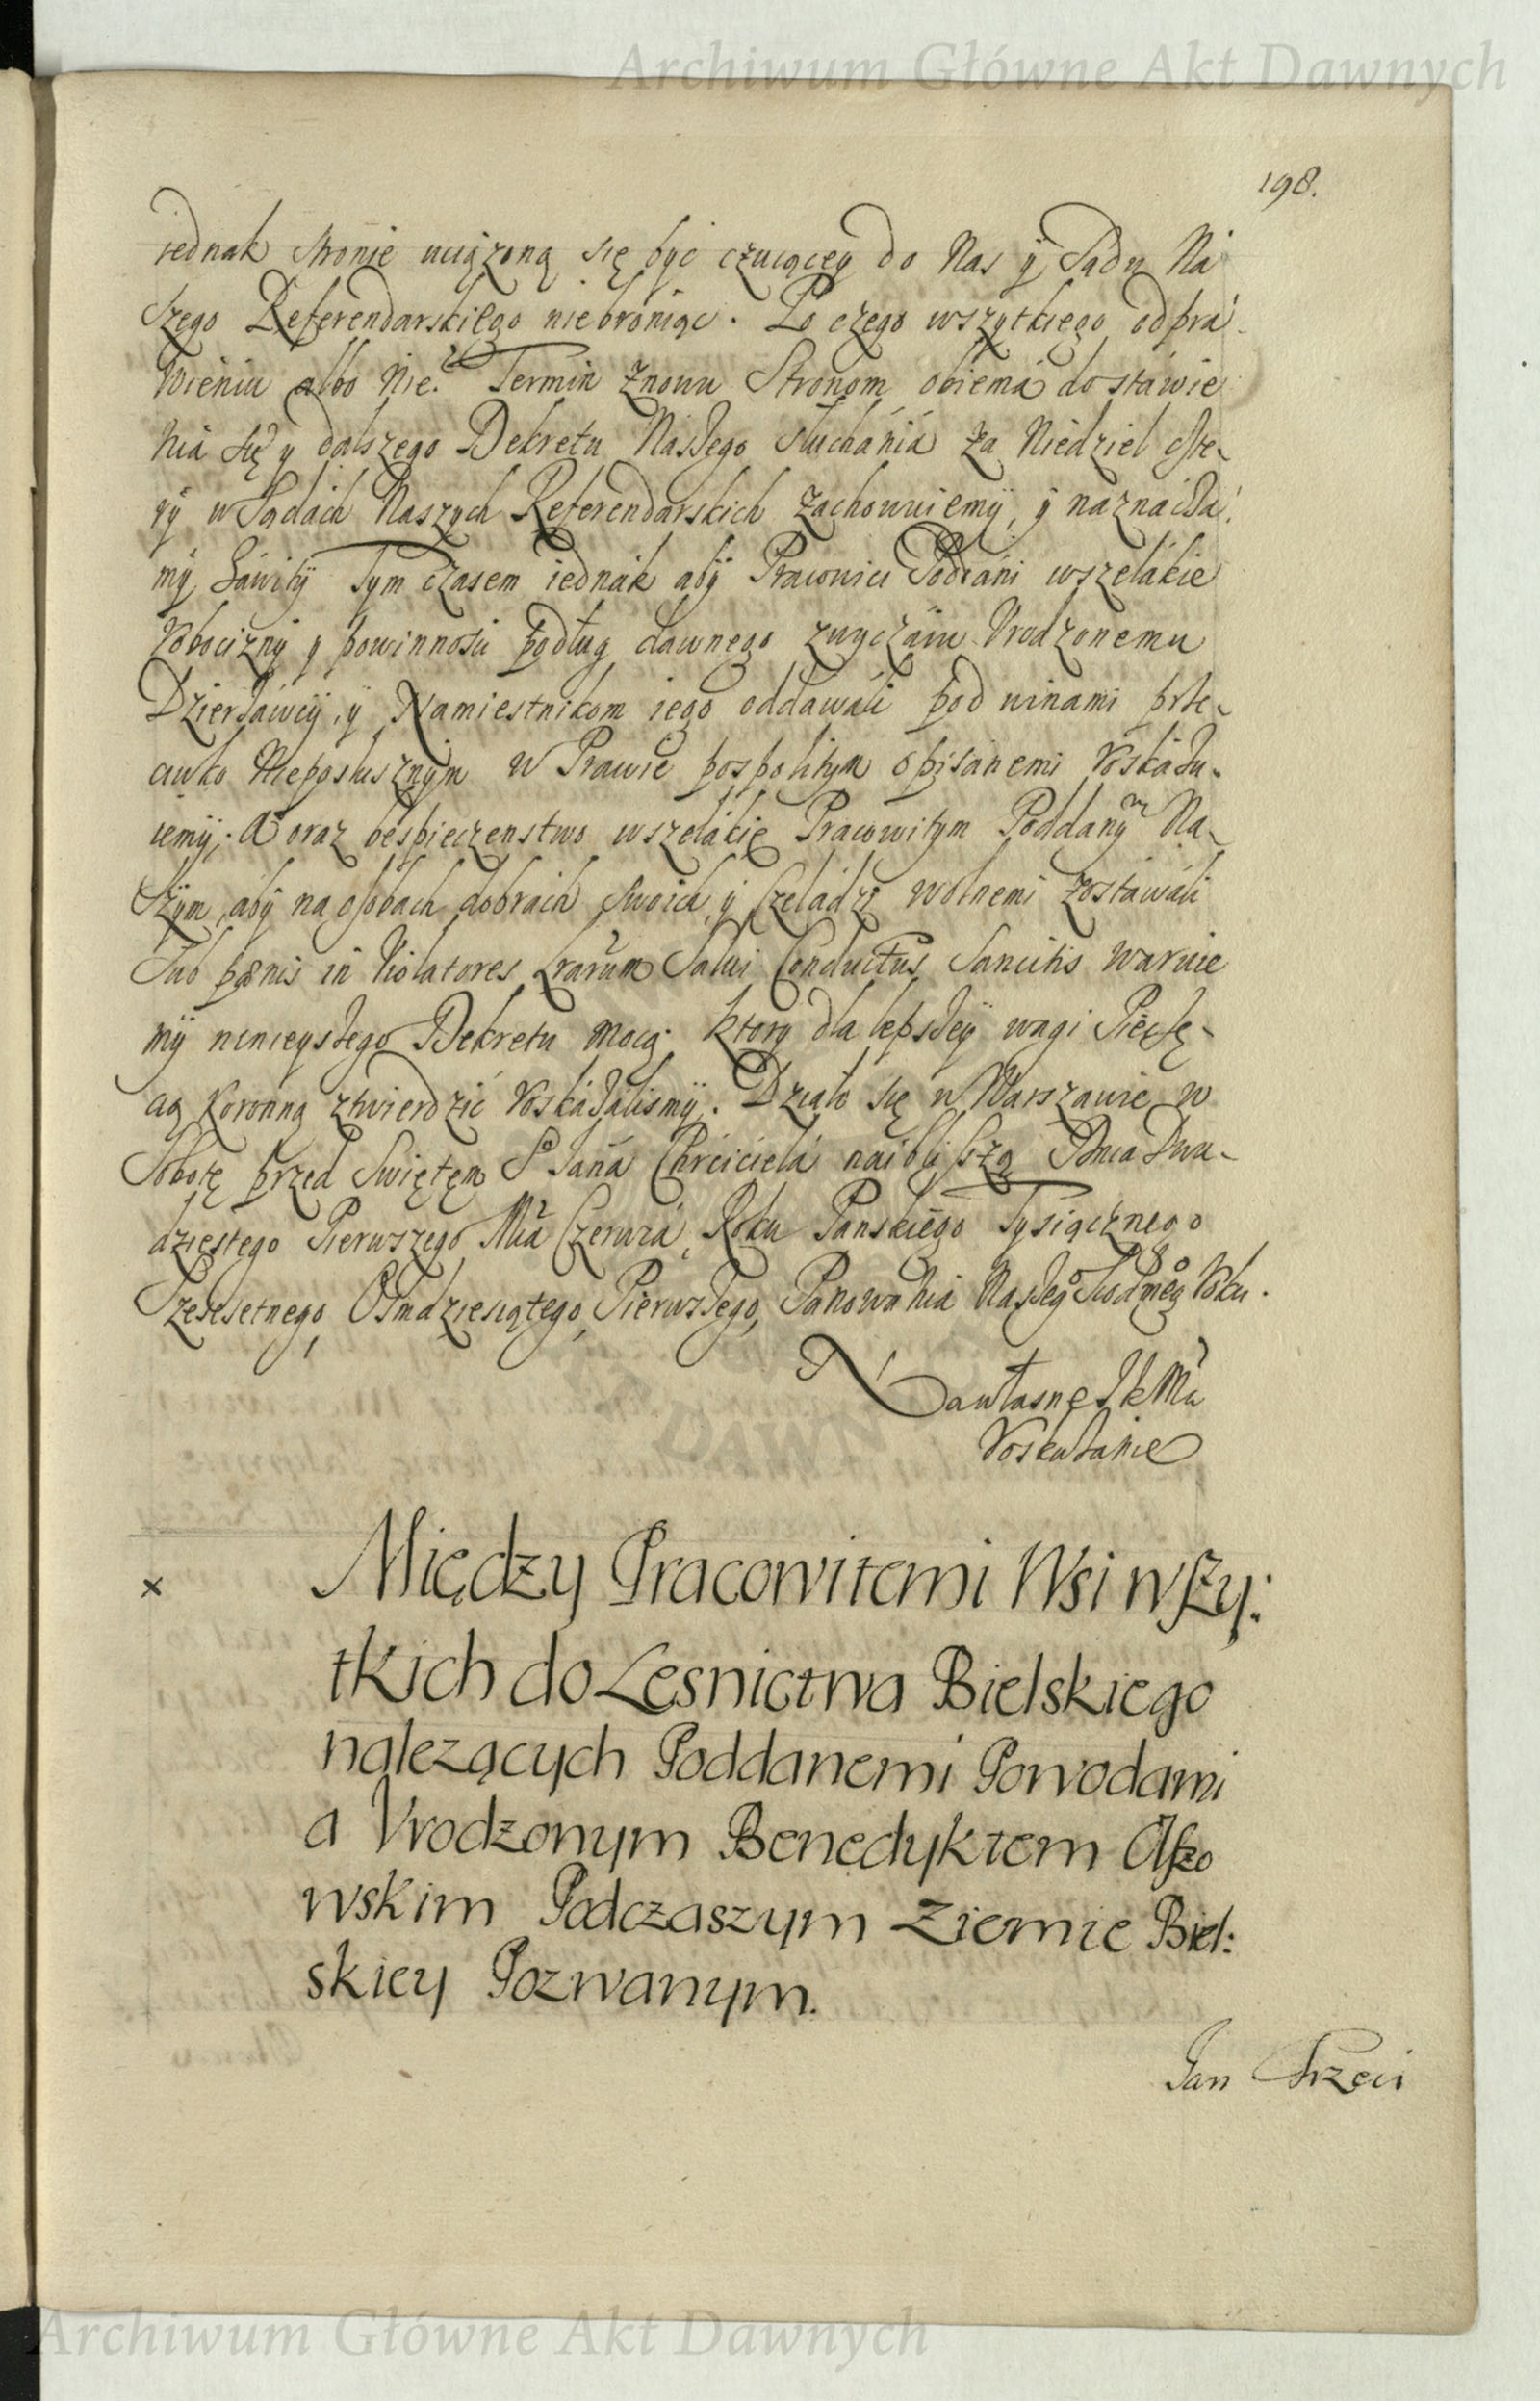 Archiwum Główne Akt Dawnych
198.
iednak stronie uciążoną się być czuiącey do Nas ÿ Sądu Na
szego Referendarskiego niebroniąc. Po czego wszytkiego odpra
wieniu albo Nie. Termin znowu Stronom obiema do stáwie
nia się y dalszego Dekretu Naszego słuchánia za Niedziel czte-
ry w Sądách Naszych Referendarskich zachowuiemÿ, ÿ náznácza
mÿ záwity Tym czasem iednák abÿ Pracowici Poddani wszelákie
Robocizny y powinnosci podług dawnego zwyczáiu Vrodzonemu
Dzierżáwcÿ, ÿ Namiestnikom iego oddawáli pod winami prze-
ciwko Nieposłusznym w Prawie pospolitym opisánemi Roskázu-
iemÿ. A oraz bespieczenstwo wszelákie Pracowitym Poddanÿm Na-
szÿm, abÿ na osobach dobrách swoich, ÿ Czeládzi wolnemi zostáwáli
Sub pænis in Violatores Lrarum Salui Conductus Sancitis waruie
mÿ ninieyszego Dekretu mocą. Ktory dla lepszeÿ wagi Pieczę-
cią Koronną ztwierdzić Roskázálismÿ. Działo się w Warszawie w
Sobotę przed Swiętem S° Jana Chrciciela náiblisszą Dnia Dwu-
dziestego Pierwszego Mca Czerwca, Roku Panskiego Tysiącznego
Szescsetnego, Osmdziesiątego, Pierwszego, Panowania Naszeg° Siodmeg° Roku.
Na własne JkMci
Roskazanie
x Między Pracowitemi Wsi wszy:
tkich do Lesnictwa Bielskiego
nalezących Poddanemi Powodami
a Vrodzonym Benedyktem Olszo
wskim Podczaszym Ziemie Biel:
skiey Pozwanym.
Jan Trzeci
Archiwum Główne Akt Dawnych